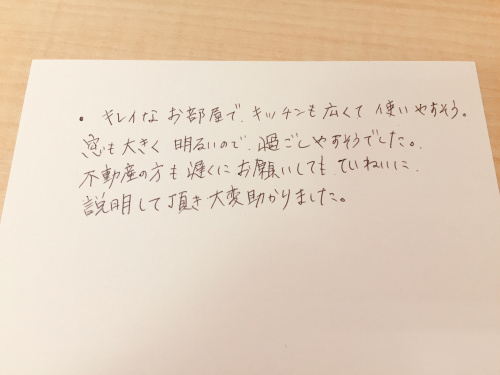 ・キレイなお部屋で、キッチンも広くて使いやすそう。
窓も大きく明るいので、過ごしやすそうでした。
不動産の方も遅くにお願いしても、ていねいに、
説明して頂き大変助かりました。